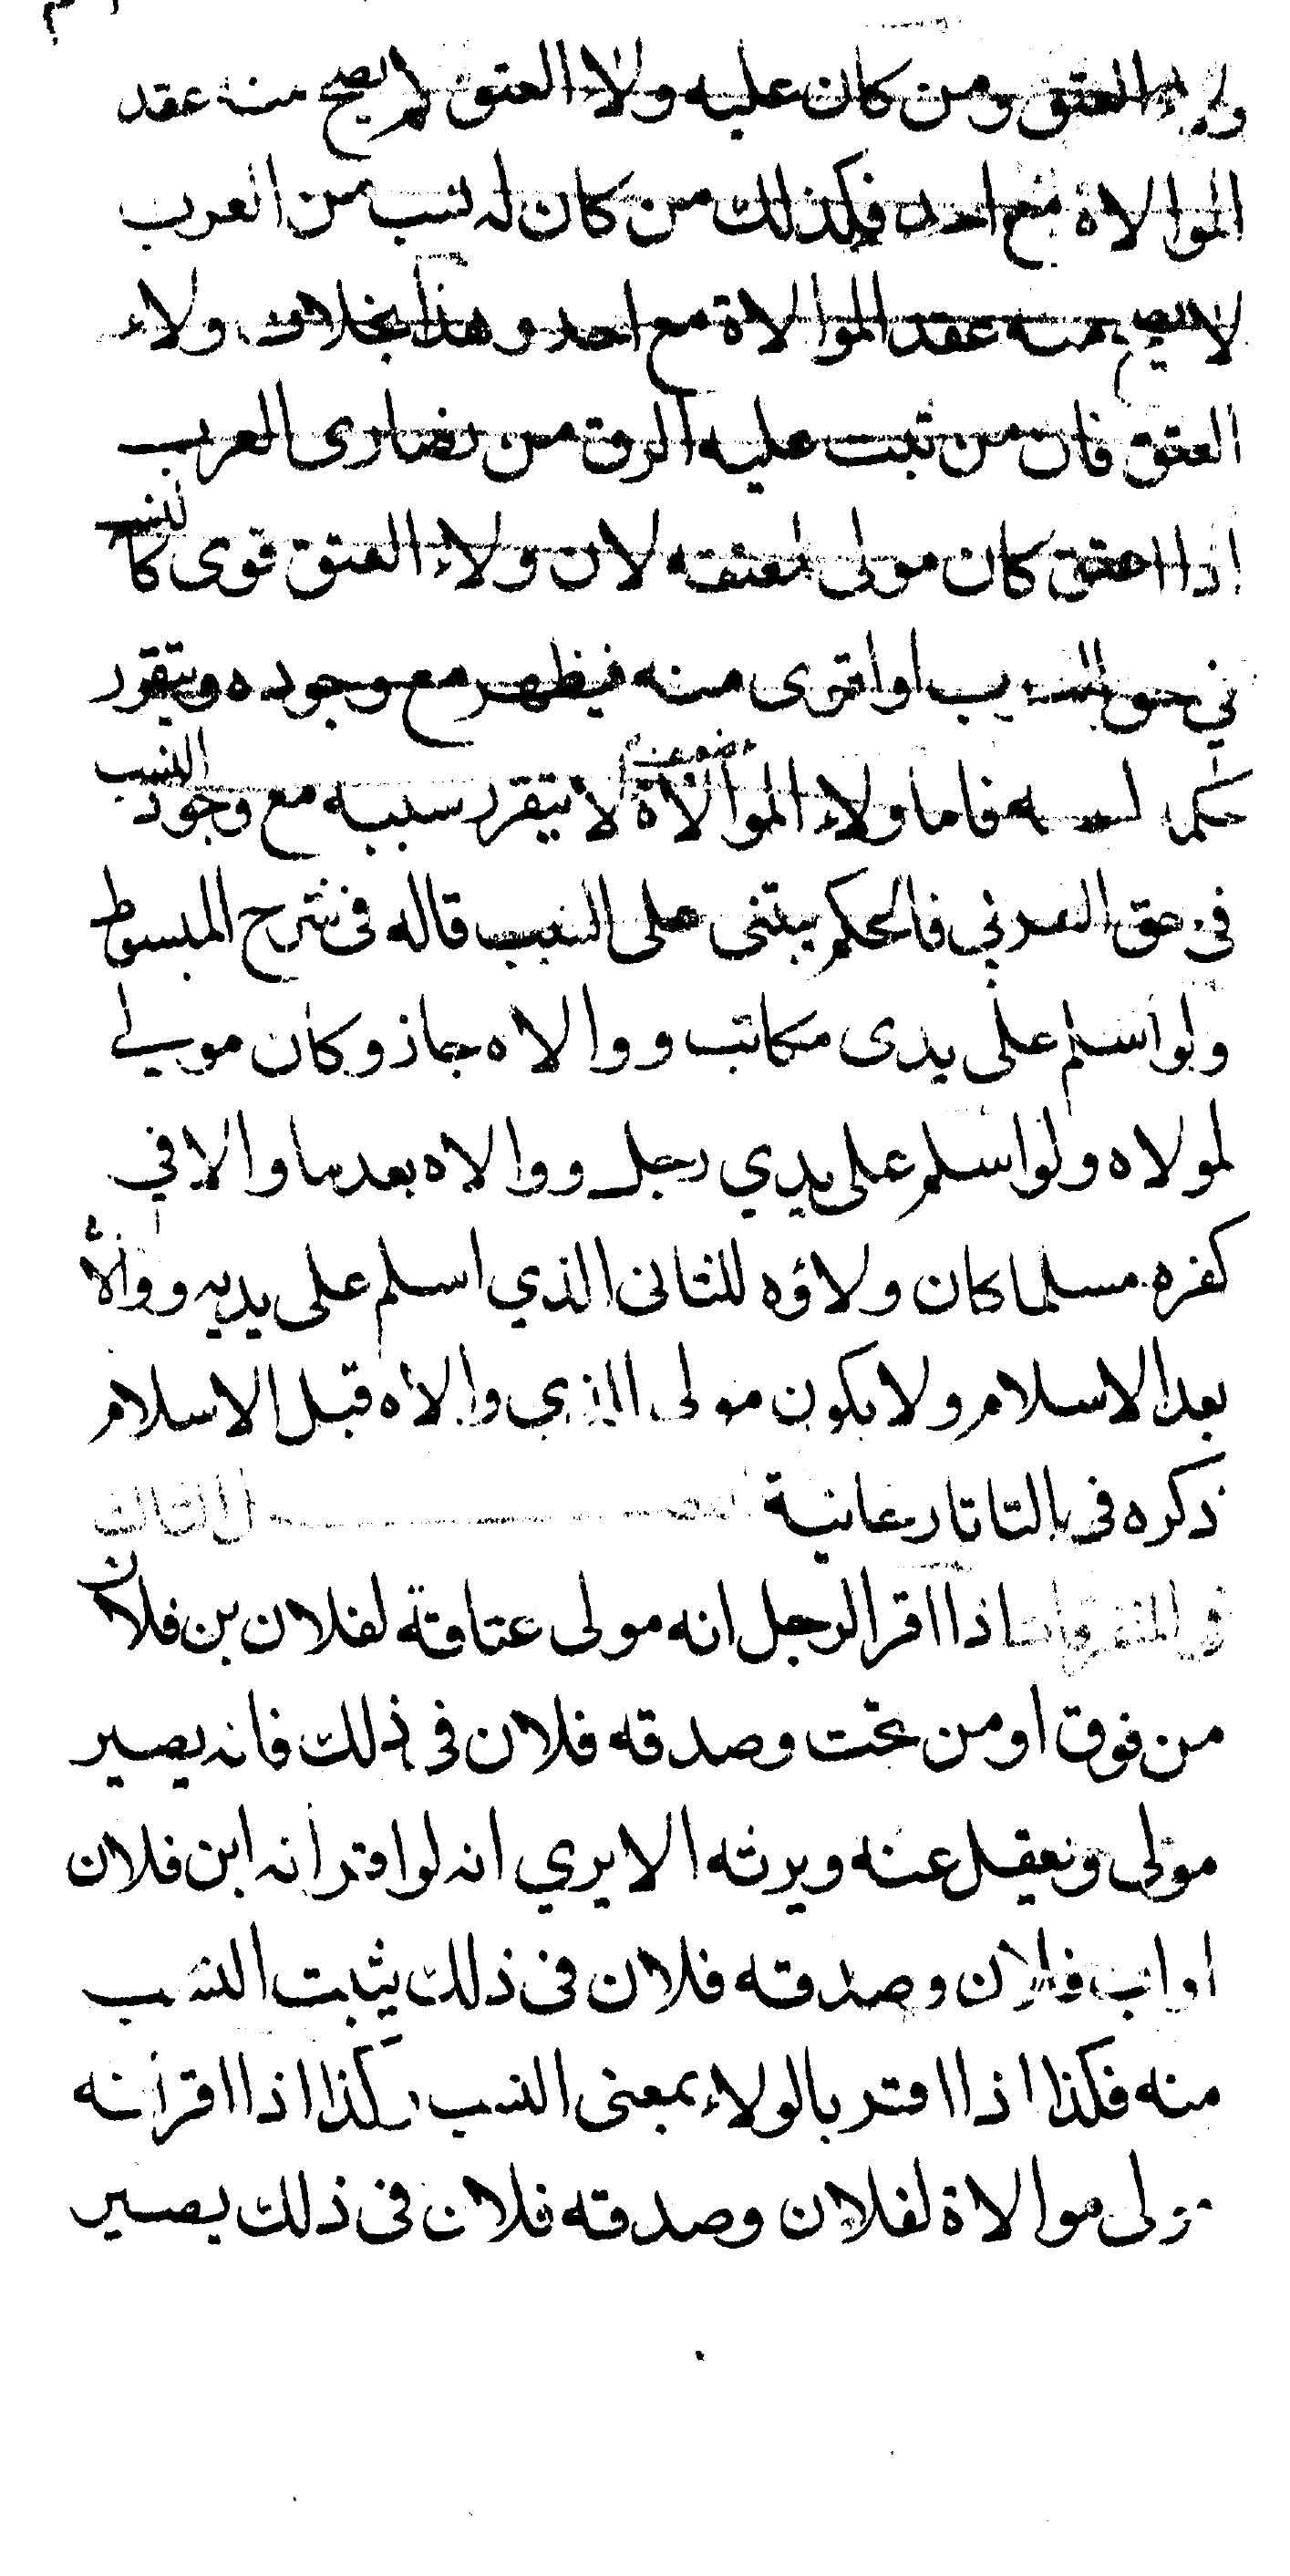 ولاء العتق ومن كان عليه ولاء العتق لا يصح منه عقد
الموالاة مع احد فكذلك من كان له نسب من العرب
لا يصح منه عقد الموالاة مع احد وهذا بخلاف ولاء
العتق فان من ثبت عليه الرق من نصارى العرب
اذا اعتق كان مولى لمعتقه لان ولاء العتق قوى كالنسب
في حق النسب او اقوى منه فيظهر مع وجوده ويتقرر
حكم فاما ولاء الموالاة ضعيف لا يتقرر سببه مع وجود النسب
في حق العربي فالحكم يبتنى على السبب قاله فى شرح المبسوط
ولو اسلم على يدى مكاتب ووالاه جاز وكان مولى
لمولاه ولو اسلم على يدي رجل ووالاه بعدما والا في
كفره مسلما كان ولاؤه للثانى الذي اسلم على يديه ووالاه
بعد الاسلام ولا يكون مولى الذي والاه قبل الاسلام
ذكره فى التاتارخانية الفصل الثالث
فى المتفرقات اذا اقر الرجل انه مولى عتاقة لفلان بن فلان
من فوق او من تحت وصدقه فلان فى ذلك فانه يصير
مولى ويعقل عنه ويرثه الا يري انه لو اقر انه ابن فلان
او اب فلان وصدقه فلان فى ذلك يثبت النسب
منه فكذا اذا اقر بالولاء بمعنى النسب وكذا اذا اقر انه
مولى موالاة لفلان وصدقه فلان فى ذلك يصير